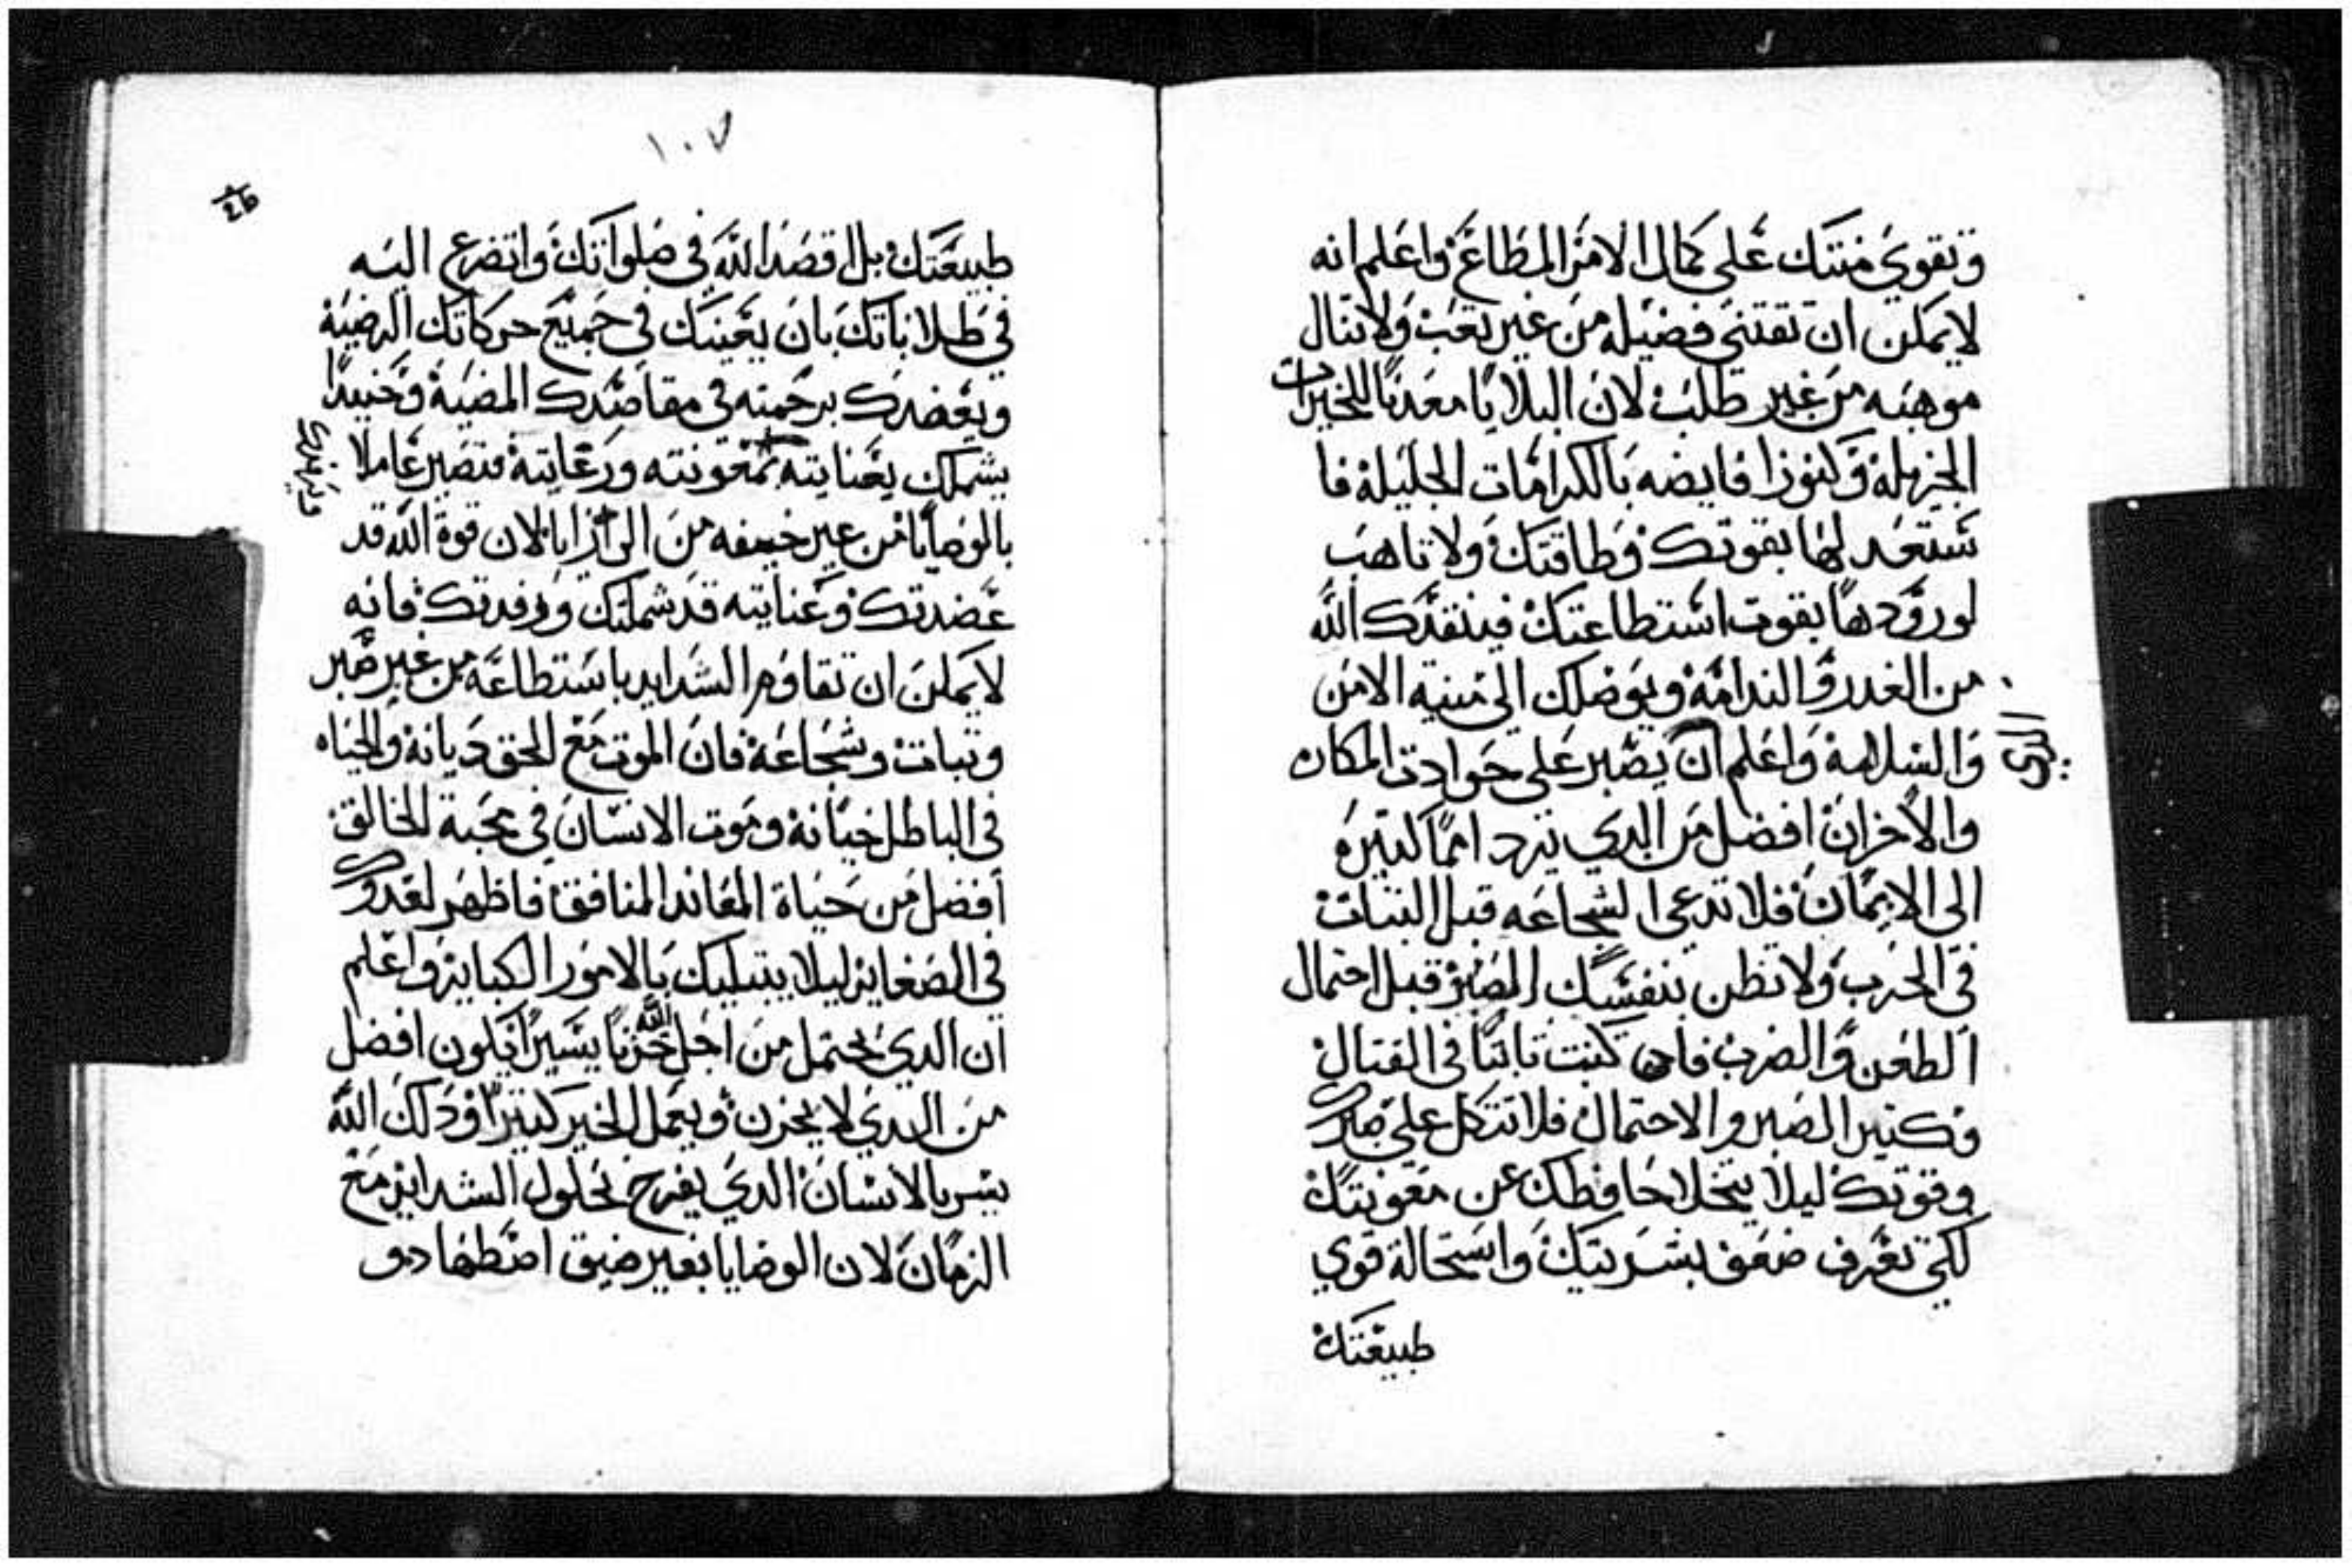 وتقوي منتك على كمال الامر المطاع واعلم انه
لا يمكن ان تقتني فضيله من غير تعب ولا تنال
موهبه من غير طلب لان البلايا معدنا للخيرات
الجزيله وكنوزا فايضه بالكرامات الجليلة فا
ستعد لها بقوتك وطاقتك ولا تاهب
لورودها بقوت استطاعتك فينقدك الله
من الغدر والندامة ويوصلك الى مينيه الامن
والسلامة واعلم ان يصبر على حوادت المكان
الدي
والاحزان افضل من الدي يرد امما كتيره
الى الايمان فلا تدعي الشجاعه قبل التبات
في الحرب ولا تظن بنفسك الصبر قبل احتمال
الطعن والضرب فان كنت تابتا في القتال
وكتير الصبر والاحتمال فلا تتكل على صبرك
وقوتك ليلا يتخلا حافظك عن معونتك
لكي تعرف ضعف بشريتك واستحالة قوي
طبيعتك
١٠٧
طبيعتك بل اقصد الله في صلواتك واتضرع اليه
في طلاباتك بان يعينك في جميع حركاتك الرضية
ويعضدك برحمته في مقاصدك المضية وحنيدا
يشملك بعنايته بمعونته ورعايته فتصير عاملا
بالوصايا من غير خيفه من الرزايا لان قوة الله قد
عضدتك وعنايته قد شملتك ورفدتك فانه
لا يمكن ان تقاوم الشدايد باستطاعة من غير صبر
وتبات وشجاعة فان الموت مع الحق ديانة والحياه
في الباطل خيانة وموت الانسان في محبة الخالق
افضل من حياة المعاند المنافق فاظهر لعدوك
في الصغاير ليلا يبتليك بالامور الكباير واعلم
ان الدي يحتمل من اجل الله حزنا يسيرا يكون افضل
من الدي لا يحزن ويعمل الخير كتيرا ودلك الله
يسر بالانسان الدي يفرح بحلول الشدايد مع
الزمان لان الوصايا بغير ضيق اضطهاد هو